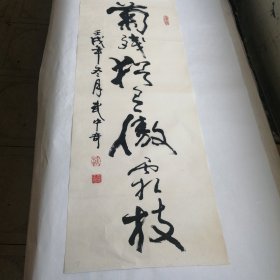 菊残犹有傲霜枝
壬戌年冬月武中奇